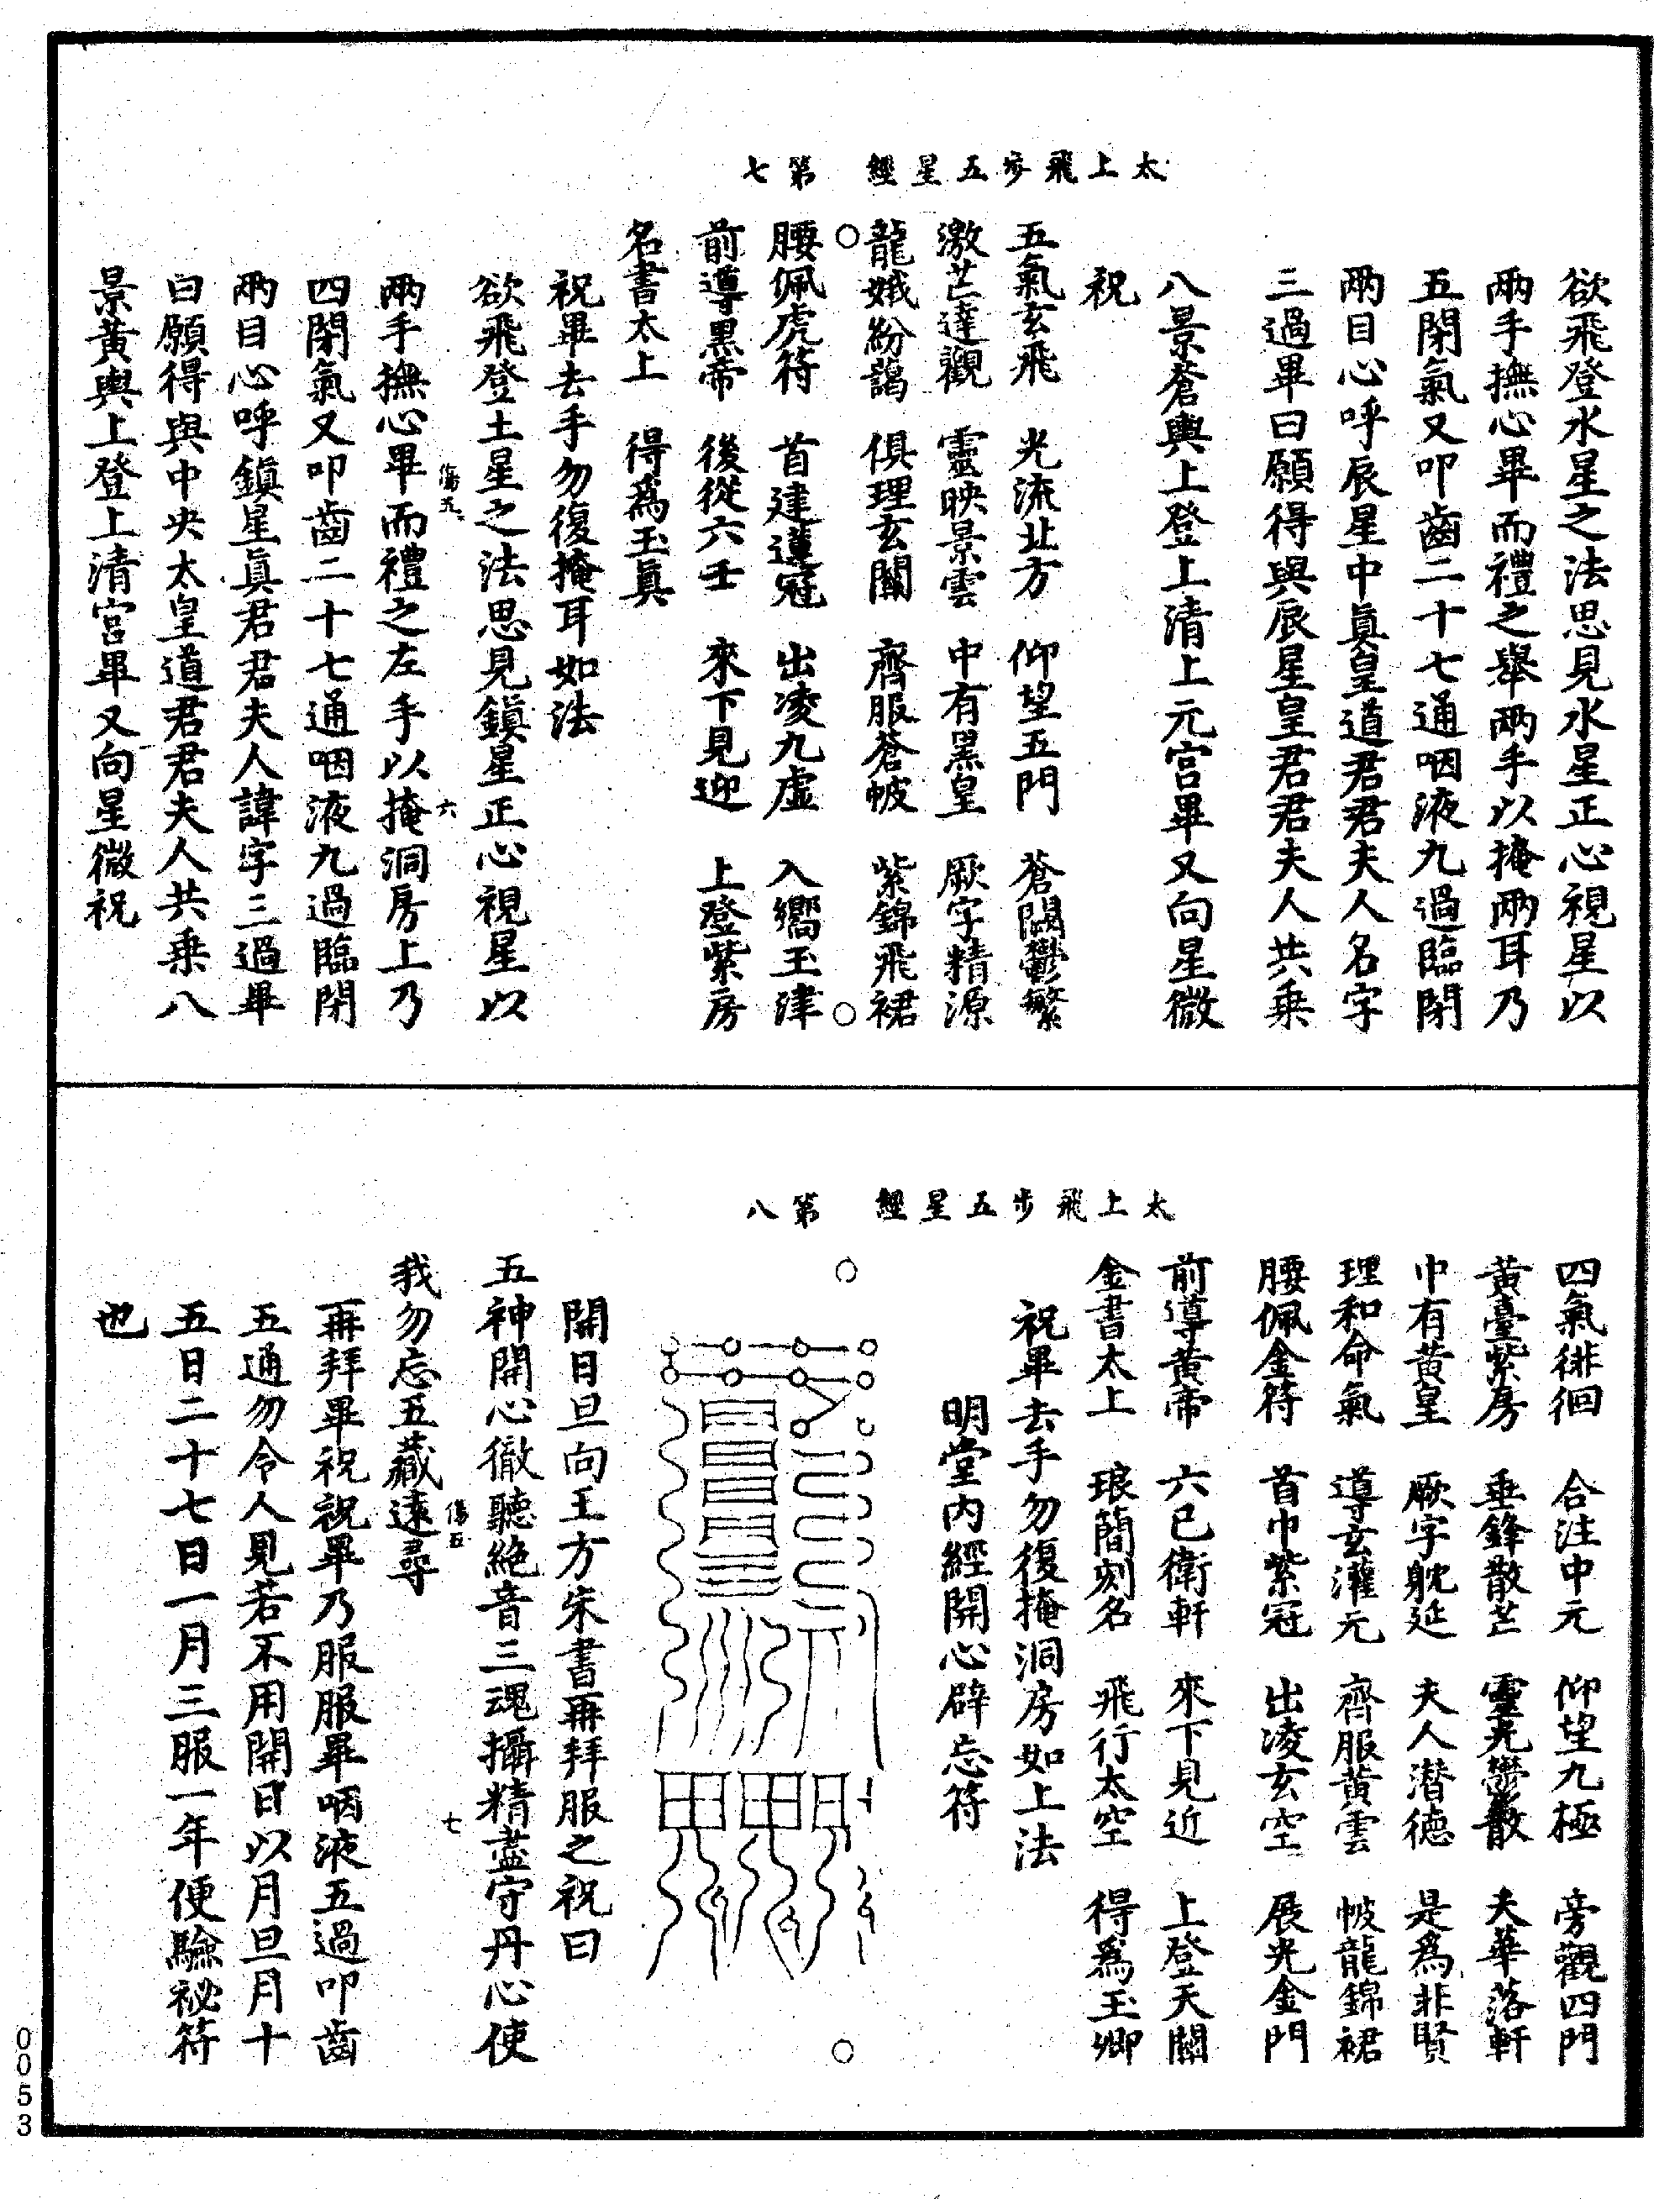 太上飛步五星經　第七
欲飛登水星之法思見水星正心視星以
兩手撫心畢而禮之舉兩手以掩兩耳乃
五閉氣又叩齒二十七通咽液九過臨閉
兩目心呼辰星中眞皇道君君夫人名字
三過畢曰願得與辰星皇君君夫人共乗
八景蒼輿上登上清上元宮畢又向星微
祝
五氣玄飛　光流北方　仰望五門　蒼闕鬱繁
激芒達觀　靈映景雲　中有黑皇　厥字精源
龍娥紛藹　俱理玄關　齊服蒼帔　紫錦飛裙
腰佩虎符　首建蓮冠　出凌九虛　入嚮玉津
前導黑帝　後從六壬　來下見迎　上登紫房
名書太上　得爲玉眞
祝畢去手勿復掩耳如法
欲飛登土星之法思見鎭星正心視星以
傷五　六
兩手撫心畢而禮之左手以掩洞房上乃
四閉氣又叩齒二十七通咽液九過臨閉
兩目心呼鎭星眞君君夫人諱字三過畢
曰願得與中央太皇道君君夫人共乗八
景黃輿上登上清宮畢又向星微祝
太上飛步五星經　第八
四氣徘徊　合注中元　仰望九極　旁觀四門
黃臺紫房　垂鋒散芒　靈光鬱散　夫華落軒
中有黃皇　厥字躭延　夫人潛德　是爲非賢
理和命氣　導玄灌元　齊服黃雲　帔龍錦裙
腰佩金符　首巾紫冠　出凌玄空　展光金門
前導黃帝　六已衛軒　來下見近　上登天關
金書太上　琅簡刻名　飛行太空　得爲玉卿
祝畢去手勿復掩洞房如上法
明堂內經開心辟忘符
開日旦向王方朱書再拜服之祝曰
五神開心徹聽絕音三魂攝精盡守丹心使
傷五　七
我勿忘五藏遠尋
再拜畢祝祝畢乃服服畢咽液五過叩齒
五通勿令人見若不用開日以月旦月十
五日二十七日一月三服一年便驗祕符
也
0053